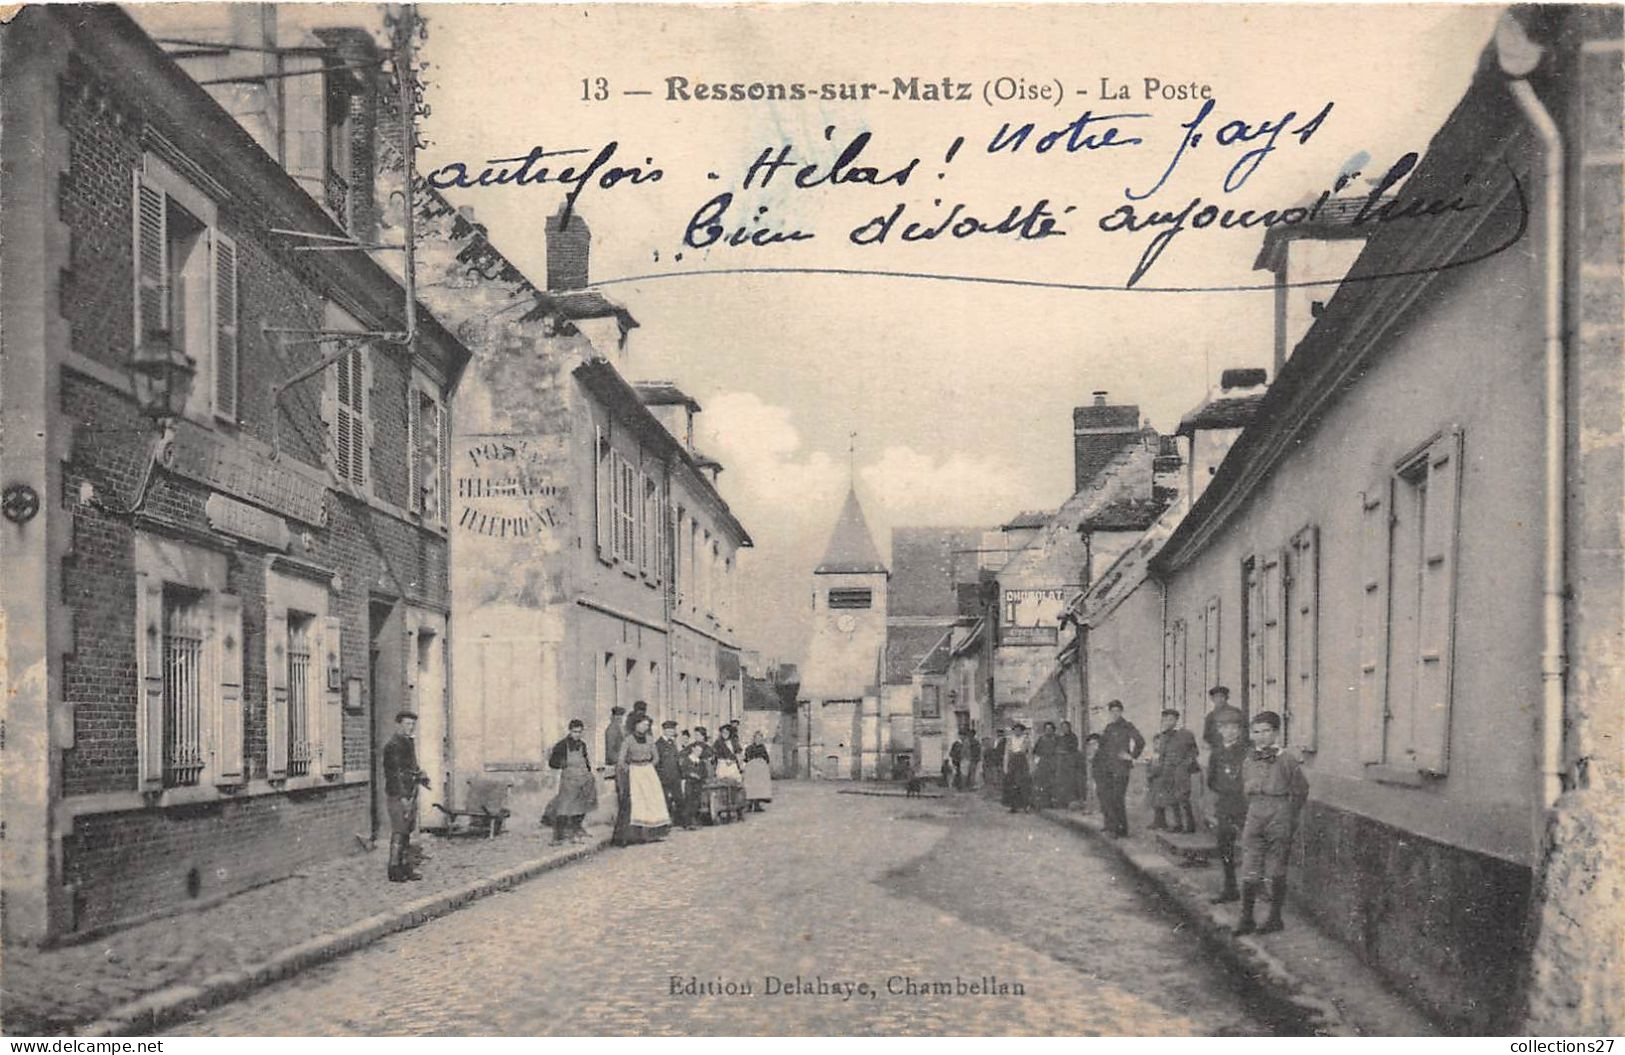 13 — Ressons-sur-Matz (Oise) - La Poste
autrefois - Hélas ! Notre pays
.. bien dévasté aujourd'hui
POSTE
TELEGRAPHE
TELEPHONE
CHOCOLAT
Edition Delahaye, Chambellan
collections27